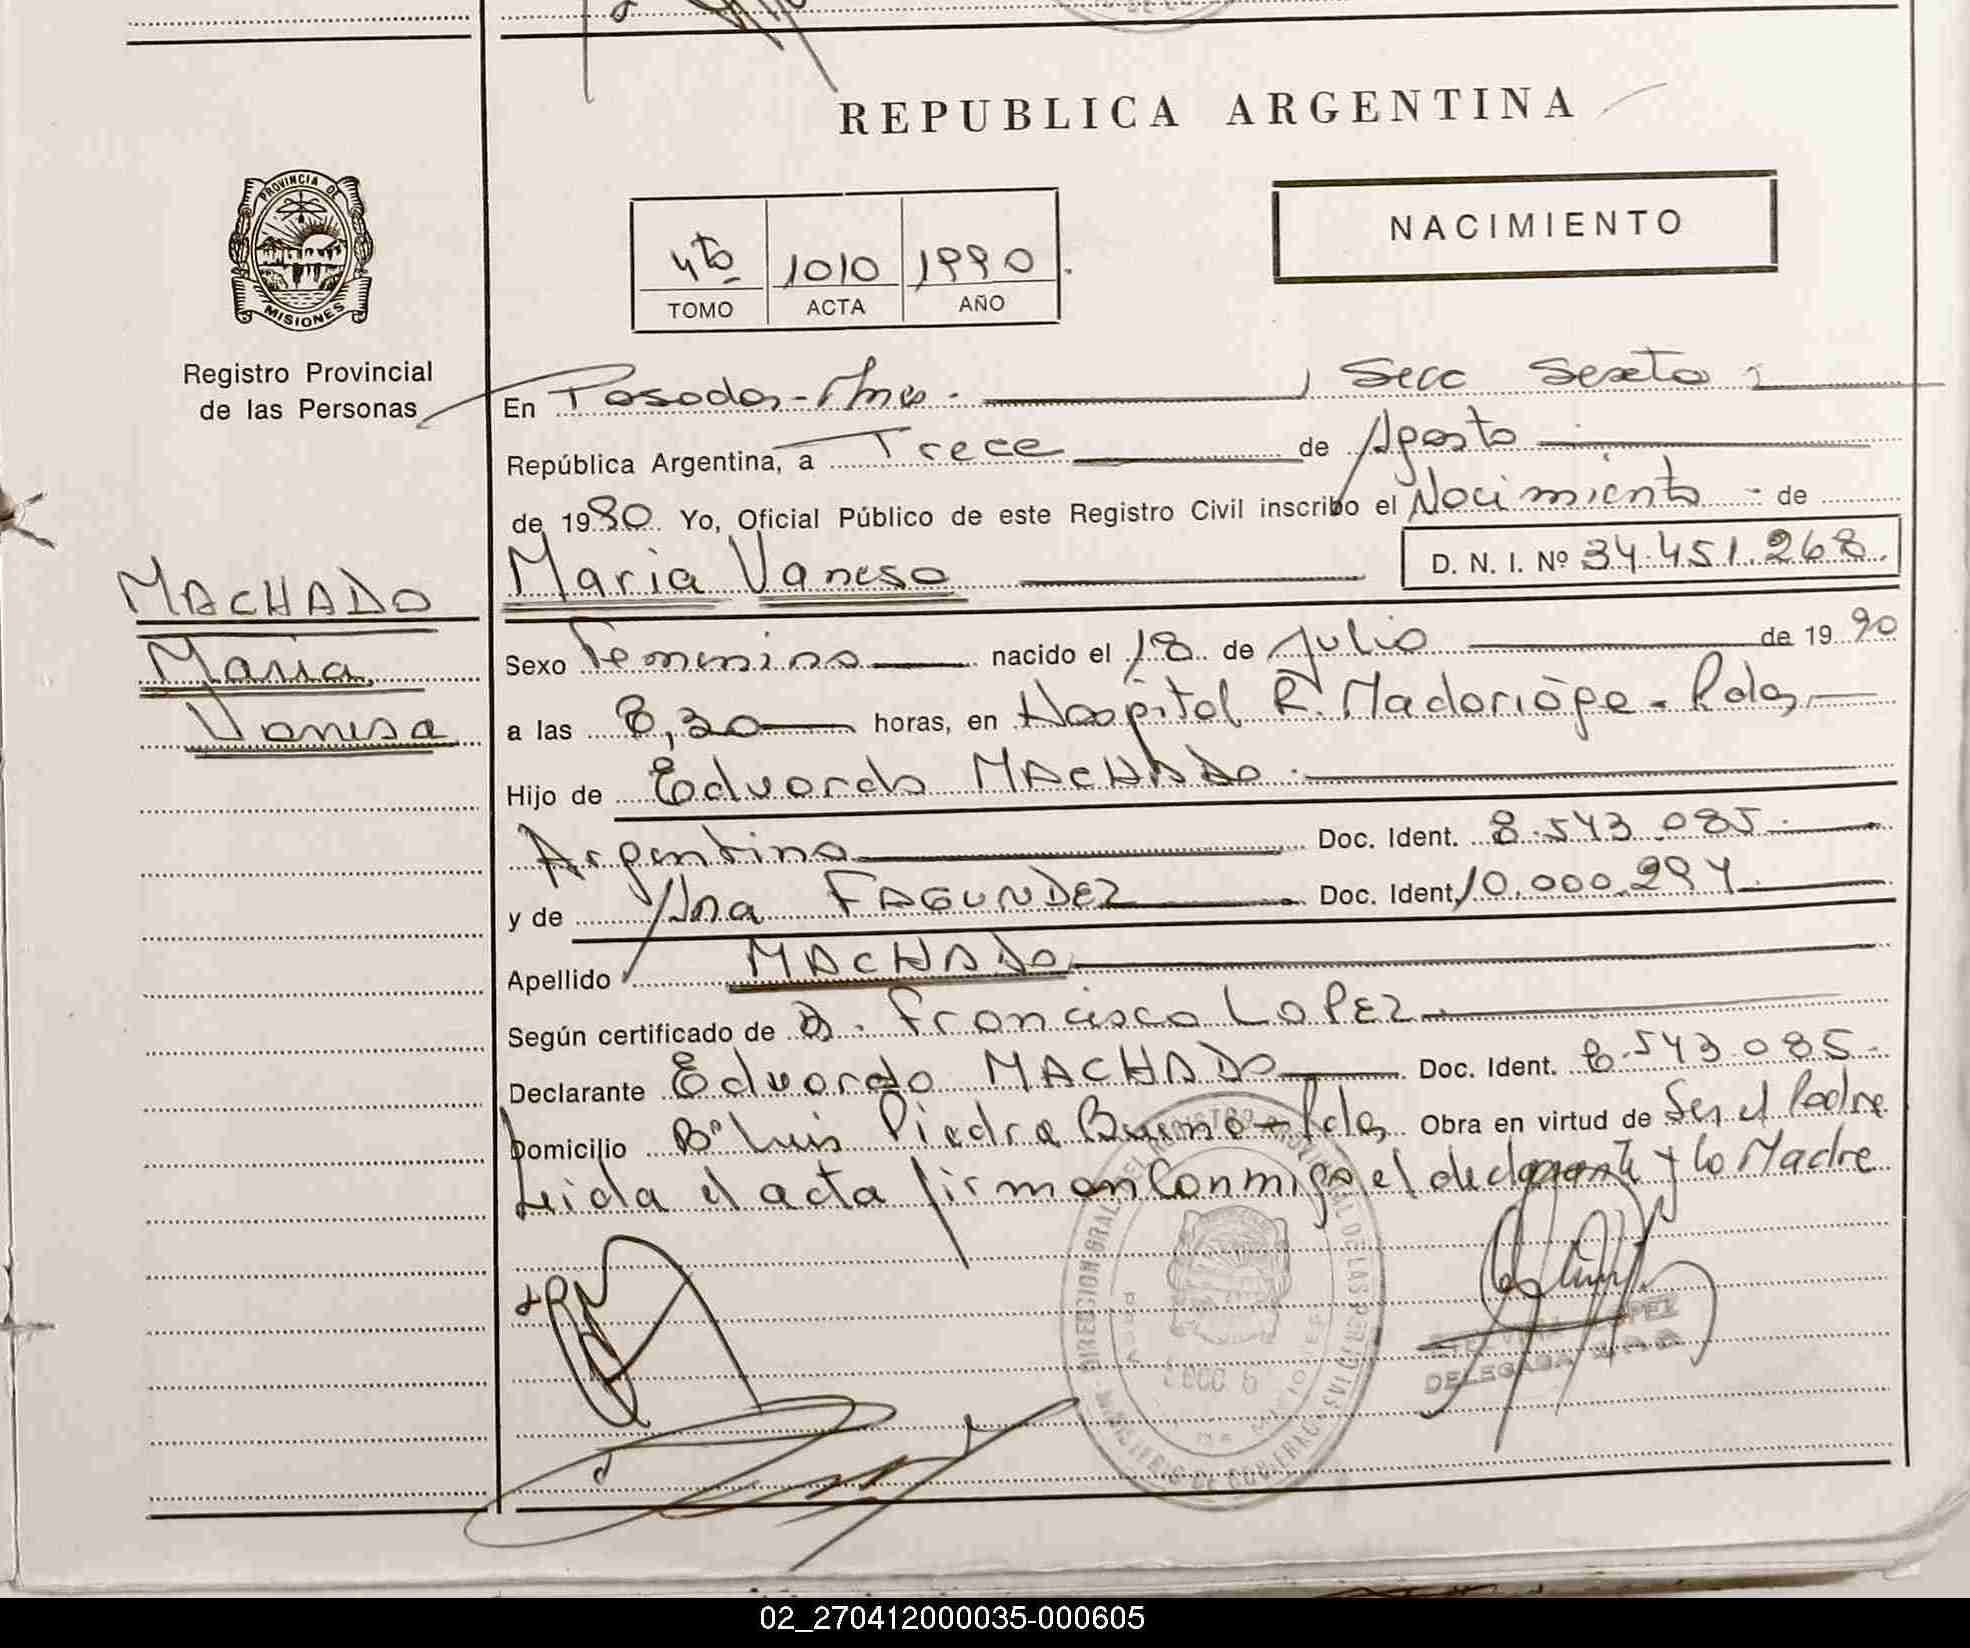 REPUBLICA ARGENTINA
PROVINCIA DE
MISIONES
Registro Provincial
de las Personas
4to 1010 1990
TOMO ACTA AÑO
NACIMIENTO
En Posadas - Mnes. , Secc Sexta
República Argentina, a Trece de Agosto
de 1990 Yo, Oficial Público de este Registro Civil inscribo el Nacimiento - de
Maria Vanesa D. N. I. Nº 34.451.268
MACHADO
Maria
Vanesa
Sexo Femenino nacido el 18 de Julio de 1990
a las 8,30 horas, en Hospital R. Madariaga - Pdas
Hijo de Eduardo MACHADO
Argentino Doc. Ident. 8.543.085
y de Ana FAGUNDEZ Doc. Ident. 10.000.294
Apellido MACHADO
Según certificado de D. Francisco LOPEZ
Declarante Eduardo MACHADO Doc. Ident. 8.543.085
Domicilio Bº Luis Piedra Buena - Pdas Obra en virtud de Ser el Padre
Leida el acta firman Conmigo el declarante y la Madre
LOPEZ
DELEGADA
02_270412000035-000605